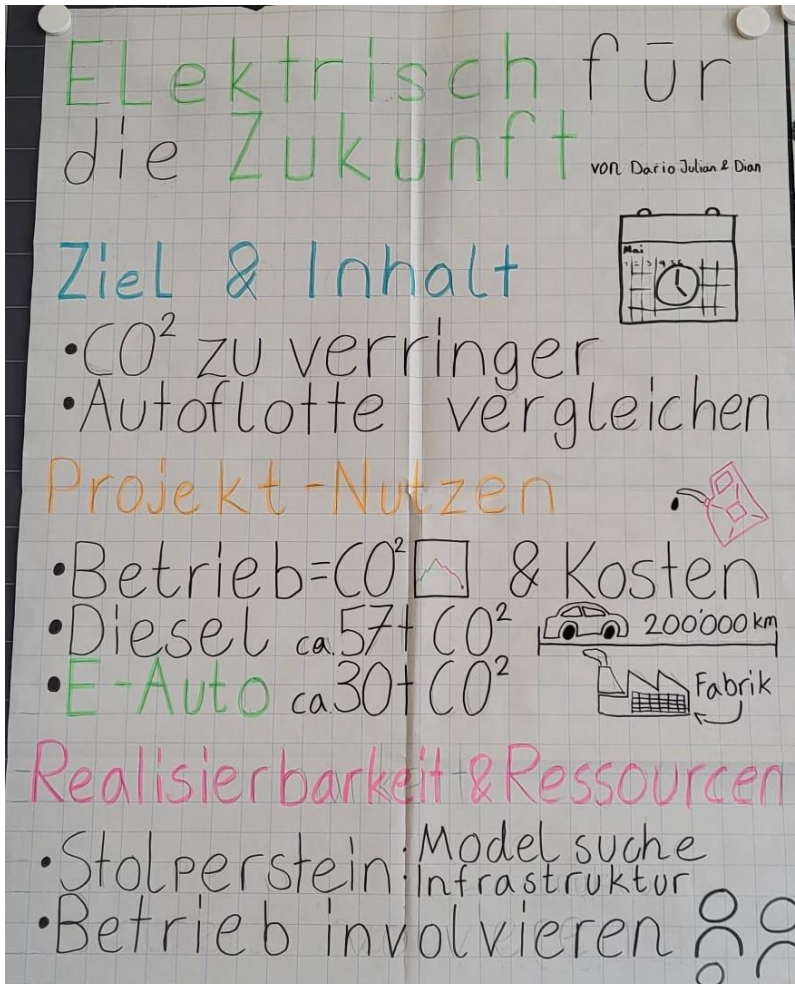 ELektrisch für
die Zukunft
von Dario Julian & Dian
Ziel & Inhalt
Mai
1 2 3 4 5 6
•CO² zu verringer
•Autoflotte vergleichen
Projekt-Nutzen
•Betrieb=CO² & Kosten
•Diesel ca.57t CO²
200'000 km
•E-Auto ca.30t CO²
Fabrik
Realisierbarkeit & Ressourcen
•Stolperstein: Model suche
Infrastruktur
•Betrieb involvieren